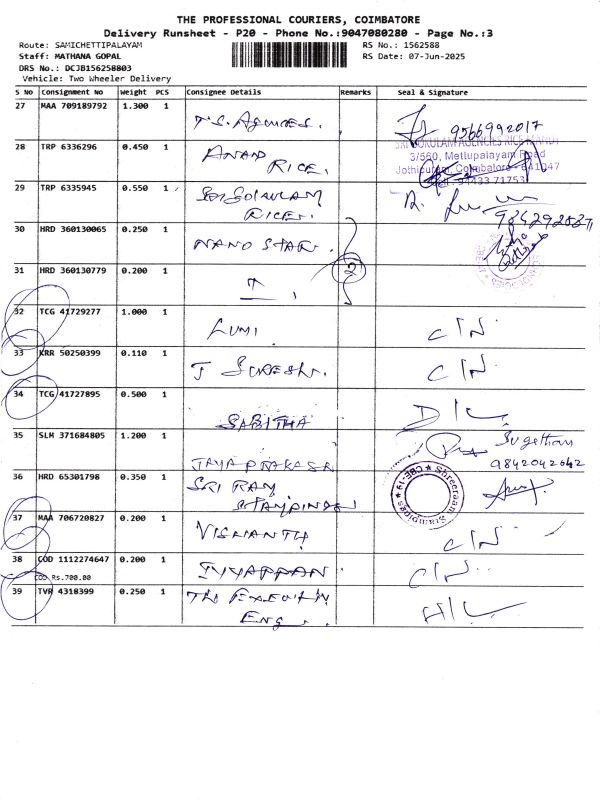 THE PROFESSIONAL COURIERS, COIMBATORE
Delivery Runsheet - P20 - Phone No.:9047080280 - Page No.:3
Route: SAMICHETTIPALAYAM RS No.: 1562588
Staff: MATHANA GOPAL RS Date: 07-Jun-2025
DRS No.: DCJB156258803
Vehicle: Two Wheeler Delivery
S No Consignment No Weight PCS Consignee Details Remarks Seal & Signature
27 MAA 709189792 1.300 1 T.S. Agencies. 9566992017
28 TRP 6336296 0.450 1 ANAND RICE.
SRI GOKULAM AGENCIES RICE MANDI
3/560, Mettupalayam Road
Jothipuram, Coimbatore - 641047
94433 71753
29 TRP 6335945 0.550 1 Sri GOKULAM RICE.
30 HRD 360130065 0.250 1 NANO STAR.
31 HRD 360130779 0.200 1
2
32 TCG 41729277 1.000 1 LUMI. C/N
33 KRR 50250399 0.110 1 J SURESH. C/N
34 TCG 41727895 0.500 1 SABITHA D/L
35 SLM 371684805 1.200 1 JAYA PRAKASH Sugethan
9842042642
36 HRD 65301798 0.350 1 SRI RAM STAMPINGS
Shreeraam Stampings CBE-19
37 MAA 706720827 0.200 1 VISHANTH C/N
38 COD 1112274647 0.200 1 IYYAPPAN C/N
COD Rs.700.00
39 TVR 4318399 0.250 1 THE EXECUTIVE Eng.